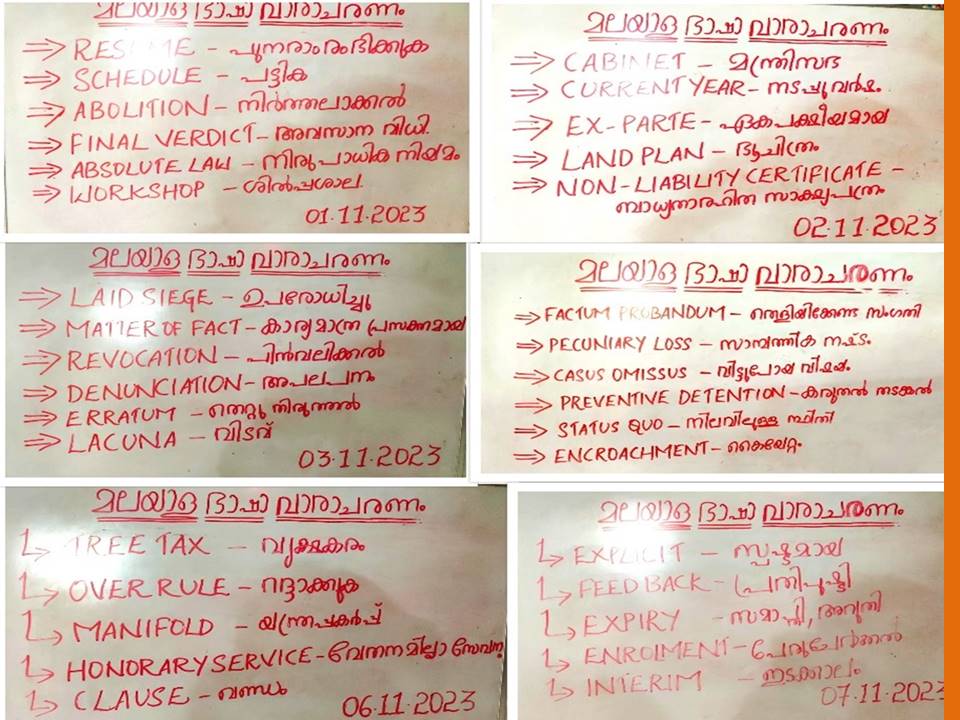 മലയാള ഭാഷാ വാരാചരണം
⇒ RESUME - പുനരാരംഭിക്കുക
⇒ SCHEDULE - പട്ടിക
⇒ ABOLITION - നിർത്തലാക്കൽ
⇒ FINAL VERDICT - അവസാന വിധി.
⇒ ABSOLUTE LAW - നിരുപാധിക നിയമം
⇒ WORKSHOP - ശിൽപ്പശാല.
01.11.2023
മലയാള ഭാഷാ വാരാചരണം
⇒ CABINET - മന്ത്രിസഭ
⇒ CURRENT YEAR - നടപ്പുവർഷം.
⇒ EX-PARTE - ഏകപക്ഷീയമായ
⇒ LAND PLAN - ഭൂചിത്രം
⇒ NON-LIABILITY CERTIFICATE -
ബാധ്യതാരഹിത സാക്ഷ്യപത്രം
02.11.2023
മലയാള ഭാഷാ വാരാചരണം
⇒ LAID SIEGE - ഉപരോധിച്ചു
⇒ MATTER OF FACT - കാര്യമാത്ര പ്രസക്തമായ
⇒ REVOCATION - പിൻവലിക്കൽ
⇒ DENUNCIATION - അപലപനം
⇒ ERRATUM - തെറ്റു തിരുത്തൽ
⇒ LACUNA - വിടവ്
03.11.2023
മലയാള ഭാഷാ വാരാചരണം
⇒ FACTUM PROBANDUM - തെളിയിക്കേണ്ട സംഗതി
⇒ PECUNIARY LOSS - സാമ്പത്തിക നഷ്ടം.
⇒ CASUS OMISSUS - വിട്ടുപോയ വിഷയം.
⇒ PREVENTIVE DETENTION - കരുതൽ തടങ്കൽ
⇒ STATUS QUO - നിലവിലുള്ള സ്ഥിതി
⇒ ENCROACHMENT - കൈയേറ്റം.
മലയാള ഭാഷാ വാരാചരണം
↳ TREE TAX - വൃക്ഷകരം
↳ OVER RULE - റദ്ദാക്കുക
↳ MANIFOLD - യന്ത്രപ്പകർപ്പ്
↳ HONORARY SERVICE - വേതനമില്ലാ സേവനം
↳ CLAUSE - ഖണ്ഡം
06.11.2023
മലയാള ഭാഷാ വാരാചരണം
↳ EXPLICIT - സ്പഷ്ടമായ
↳ FEED BACK - പ്രതിപുഷ്ടി
↳ EXPIRY - സമാപ്തി, അറുതി
↳ ENROLMENT - പേരുചേർക്കൽ
↳ INTERIM - ഇടക്കാലം
07.11.2023